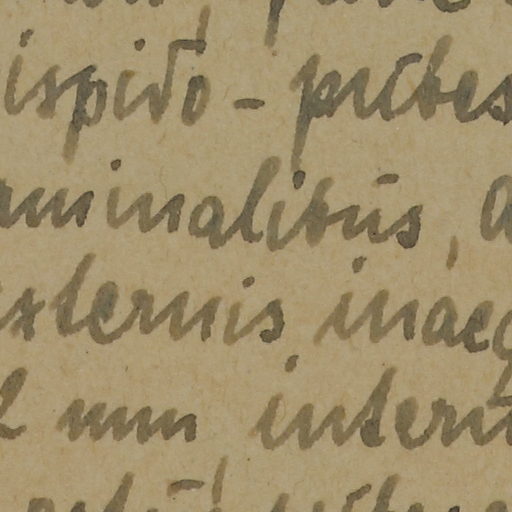 ispido-pubes
minalibus, a
externis, inaeq
2 mm, intern